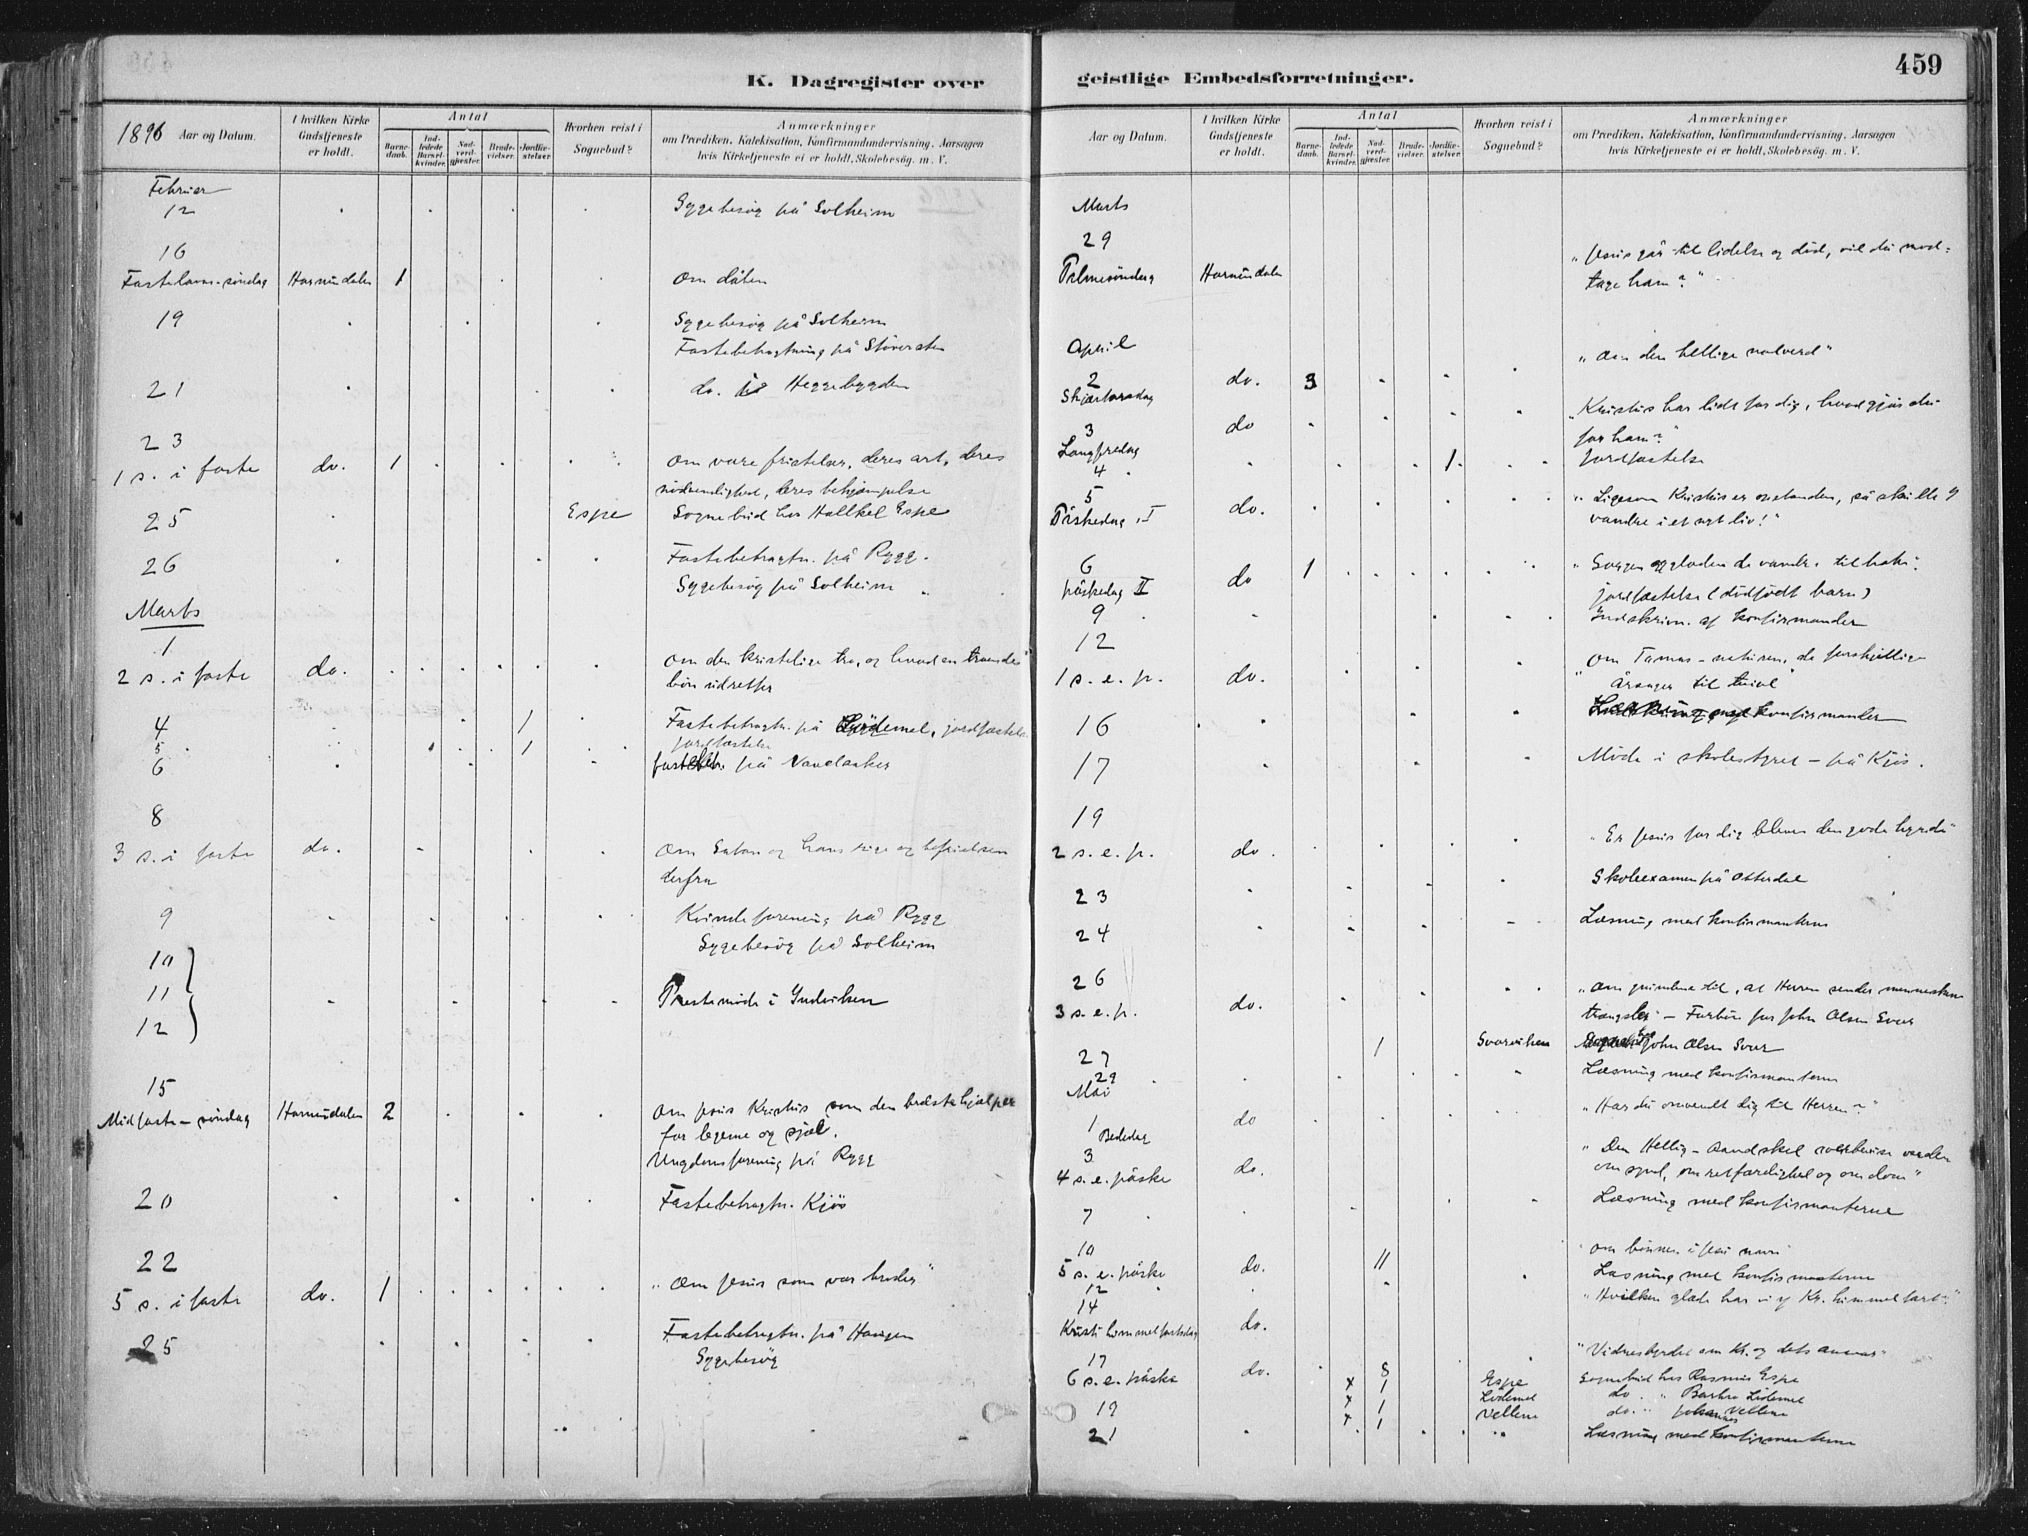 K. Dagregister over
1896 Aar og Datum.
I hvilken Kirke Gudstjeneste er holdt.
Antal
Barnedaab.
Indledede Barselkvinder.
Nadverdgjester.
Brudevielser.
Jordfæstelser
Hvorhen reist i Sognebud?
Anmærkninger
om Prædiken, Katekisation, Konfirmandundervisning, Aarsagen
hvis Kirketjeneste ei er holdt, Skolebesøg. m. V.
Februar
12 Sygebesøg på Solheim
16
Fastelavns-søndag Hornindalen 1 om dåben
19 Sygebesøg på Solheim
Fastebetragtning på
21 do. Heggebygden
23
1 s. i faste do. 1 om vore fristelser, deres art, deres
nødvendighed, deres bekjæmpelse
25 Espe Sognebud hos Hallkel Espe
26 Fastebetragtn. på Rygg.
Sygebesøg på Solheim
Marts
1
2 s. i faste do. om den kristelige tro, og hvad en troendes
bøn udretter
4 1 Fastebetragtn. på jordfæstelse
5 1 jordfæstelse
6 fastebetr. på
8
3 s. i faste do. om Satan og hans rige og befrielsen
derfra
9 Kvindeforening på Rygg
Sygebesøg på Solheim
10
11 Prestemøde i Indviken
12
15
Midfaste-søndag Hornindalen 2 om Jesus Kristus som den bedste hjælper
for legeme og sjæl.
Ungdomsforening på Rygg
20 Fastebetragtn. Kjøs
22
5 s. i faste do. 1 "om Jesus som vor broder"
25 Fastebetragtn. på Haugen
Sygebesøg
geistlige Embedsforretninger.
459
Aar og Datum.
I hvilken Kirke Gudstjeneste er holdt.
Antal
Barnedaab.
Indledede Barselkvinder.
Nadverdgjester.
Brudevielser.
Jordfæstelser
Hvorhen reist i Sognebud?
Anmærkninger
om Prædiken, Katekisation, Konfirmandundervisning, Aarsagen
hvis Kirketjeneste ei er holdt, Skolebesøg. m. V.
Marts
29 "Jesus går til lidelse og død, vil du mod=
Palmesøndag Hornindalen tage ham?"
April
2 do. 3 "om den hellige nadverd"
Skjærtorsdag
3 do "Kristus har lidt for dig, hvad gjør du
Langfredag for ham?
4 1 Jordfæstelse
5 "Ligesom Kristus er opstanden, så skulle vi
Påskedag I do. vandre i et nyt liv!"
6 do 1 "Sorgen og glæden de vandre til hobe".
påskedag II jordfæstelse (dødfødt barn)
9 Indskrivn. af konfirmander
12
1 s. e. p. do. om Tomas-naturen, de forskjellige
årsager til tvivl"
16 konfirmander
17 Møde i skolestyret - på Kjøs.
19
2 s. e. p. do. "Er Jesus for dig bleven den gode hyrde"
23 Skoleexamen på Otterdal
24 Læsning med konfirmanterne
26
3 s. e. p. do. "om grundene til, at Herren sender menneskene
trængsler" - Forbøn for John Olsen Svor
27 1 Svorviken John Olsen Svor
29 Læsning med konfirmanterne
Mai
1 Bededag do "Har du omvendt dig til Herren?"
3
4 s. e. påske do. "Den Hellig-Aand skal overbevise verden
om synd, om retfærdighed og om dom"
7 Læsning med konfirmanterne
10
5 s. e. påske do. 11 om bønnen i Jesu navn
12 Læsning med konfirmanterne
14 "Hvilken glæde har vi af Kr. himmelfart?"
Kristi himmelfartsdag do.
17
6 s. e. påske do. 8 "Vidnesbyrdet om Kr. og dets ansvar"
x 1 Espe Sognebud hos Rasmus Espe
19 x 1 Lødemel do. " Barbro Lødemel
x 1 Vellene do. " Johannes Vellene
21 Læsning med konfirmanterne